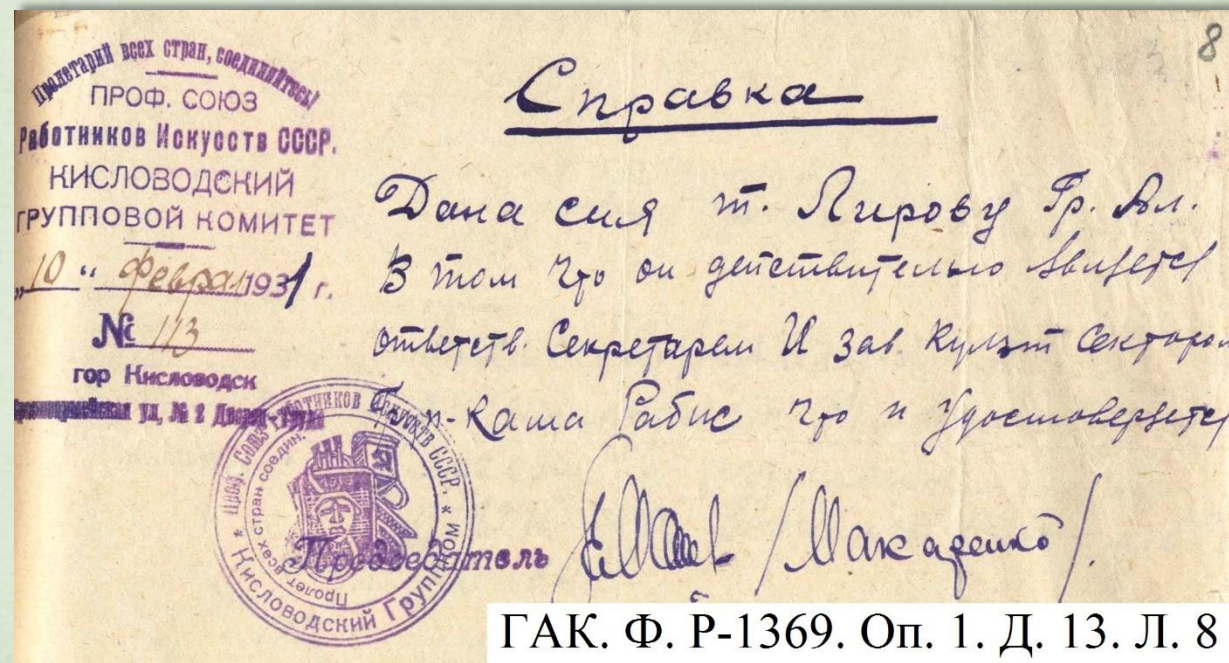 Пролетарий всех стран, соединяйтесь!
ПРОФ. СОЮЗ
Работников Искусств СССР.
КИСЛОВОДСКИЙ
ГРУППОВОЙ КОМИТЕТ
„10" Феврал 1931 г.
№ 113
гор Кисловодск
ул, № 2
8
Справка
Дана сия т. Лирову Гр. Ал.
В том что он действительно является
ответств. Секретарем И Зав. Культ Сектором
Рабис что и удостоверяется
Председатель /Макаренко/.
Проф. Союз Работников Искусств СССР. * Кисловодский Групком *
Пролет. всех стран соедин.
ГАК. Ф. Р-1369. Оп. 1. Д. 13. Л. 8